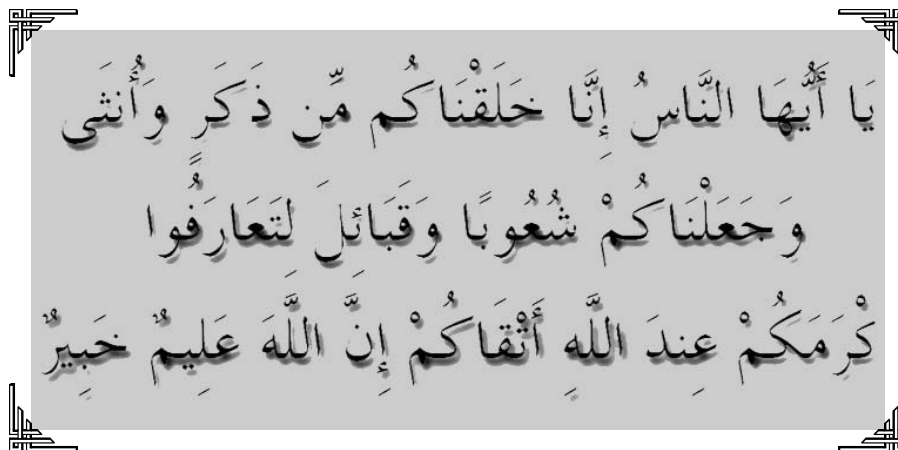 يَا أَيُّهَا النَّاسُ إِنَّا خَلَقْنَاكُم مِّن ذَكَرٍ وَأُنثَى
وَجَعَلْنَاكُمْ شُعُوبًا وَقَبَائِلَ لِتَعَارَفُوا
كْرَمَكُمْ عِندَ اللَّهِ أَتْقَاكُمْ إِنَّ اللَّهَ عَلِيمٌ خَبِيرٌ